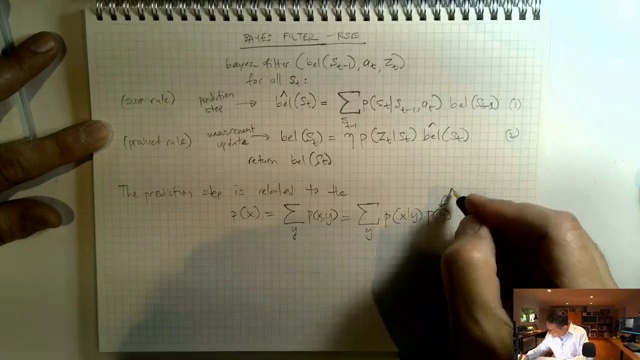 BAYES FILTER - RSE
bayes_filter (bel(S_{t-1}), a_t, Z_t)
for all S_t:
(sum rule) prediction step → bel̂(S_t) = ∑_{S_{t-1}} p(S_t|S_{t-1}, a_t) bel(S_{t-1}) (1)
(product rule) measurement update → bel(S_t) = η p(Z_t|S_t) bel̂(S_t) (2)
return bel(S_t)
The prediction step is related to the
p(x) = ∑_y p(x,y) = ∑_y p(x|y) p(y)